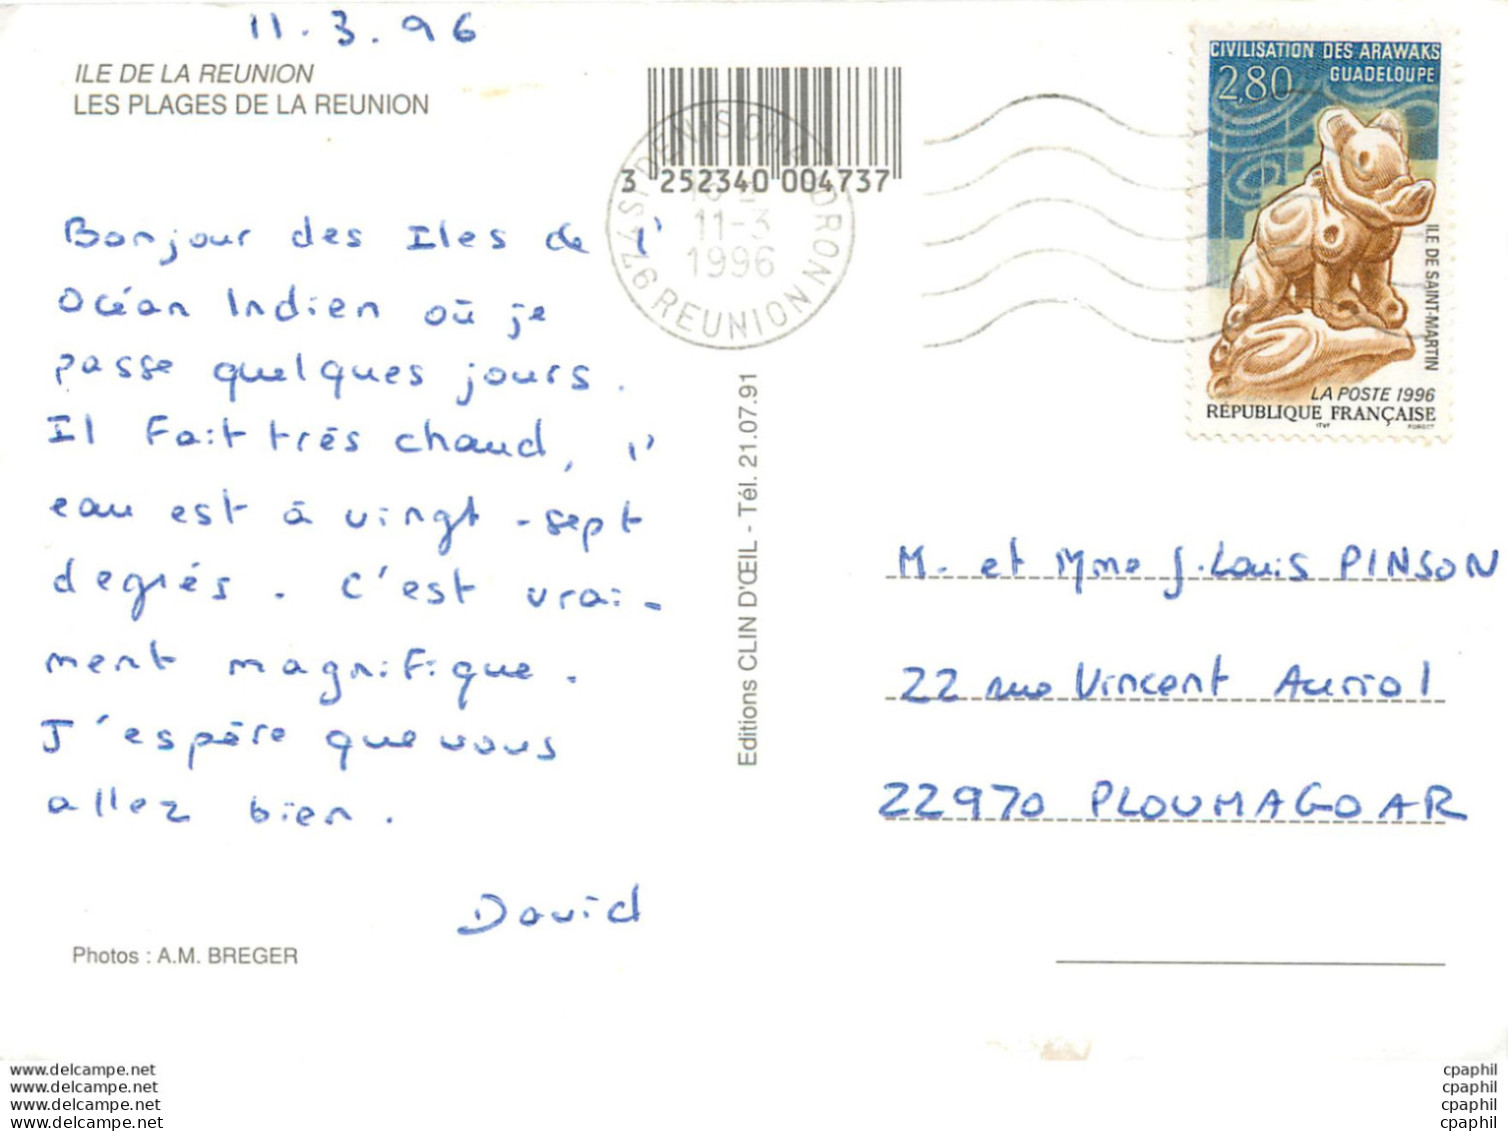 11.3.96
ILE DE LA REUNION
LES PLAGES DE LA REUNION
Bonjour des Iles de l'
Océan Indien où je
passe quelques jours.
Il Fait très chaud, l'
eau est à vingt-sept
degrés. C'est vrai-
ment magnifique.
J'espère que vous
allez bien.
David
Photos : A.M. BREGER
Editions CLIN D'ŒIL - Tél. 21.07.91
3 252340 004737
974 ST DENIS CHAUDRON
11-3
1996
REUNION
CIVILISATION DES ARAWAKS
GUADELOUPE
2,80
ILE DE SAINT-MARTIN
LA POSTE 1996
RÉPUBLIQUE FRANÇAISE
ITVF FORGET
M. et Mme J.Louis PINSON
22 rue Vincent Auriol
22970 PLOUMAGOAR
www.delcampe.net
www.delcampe.net
www.delcampe.net
www.delcampe.net
cpaphil
cpaphil
cpaphil
cpaphil